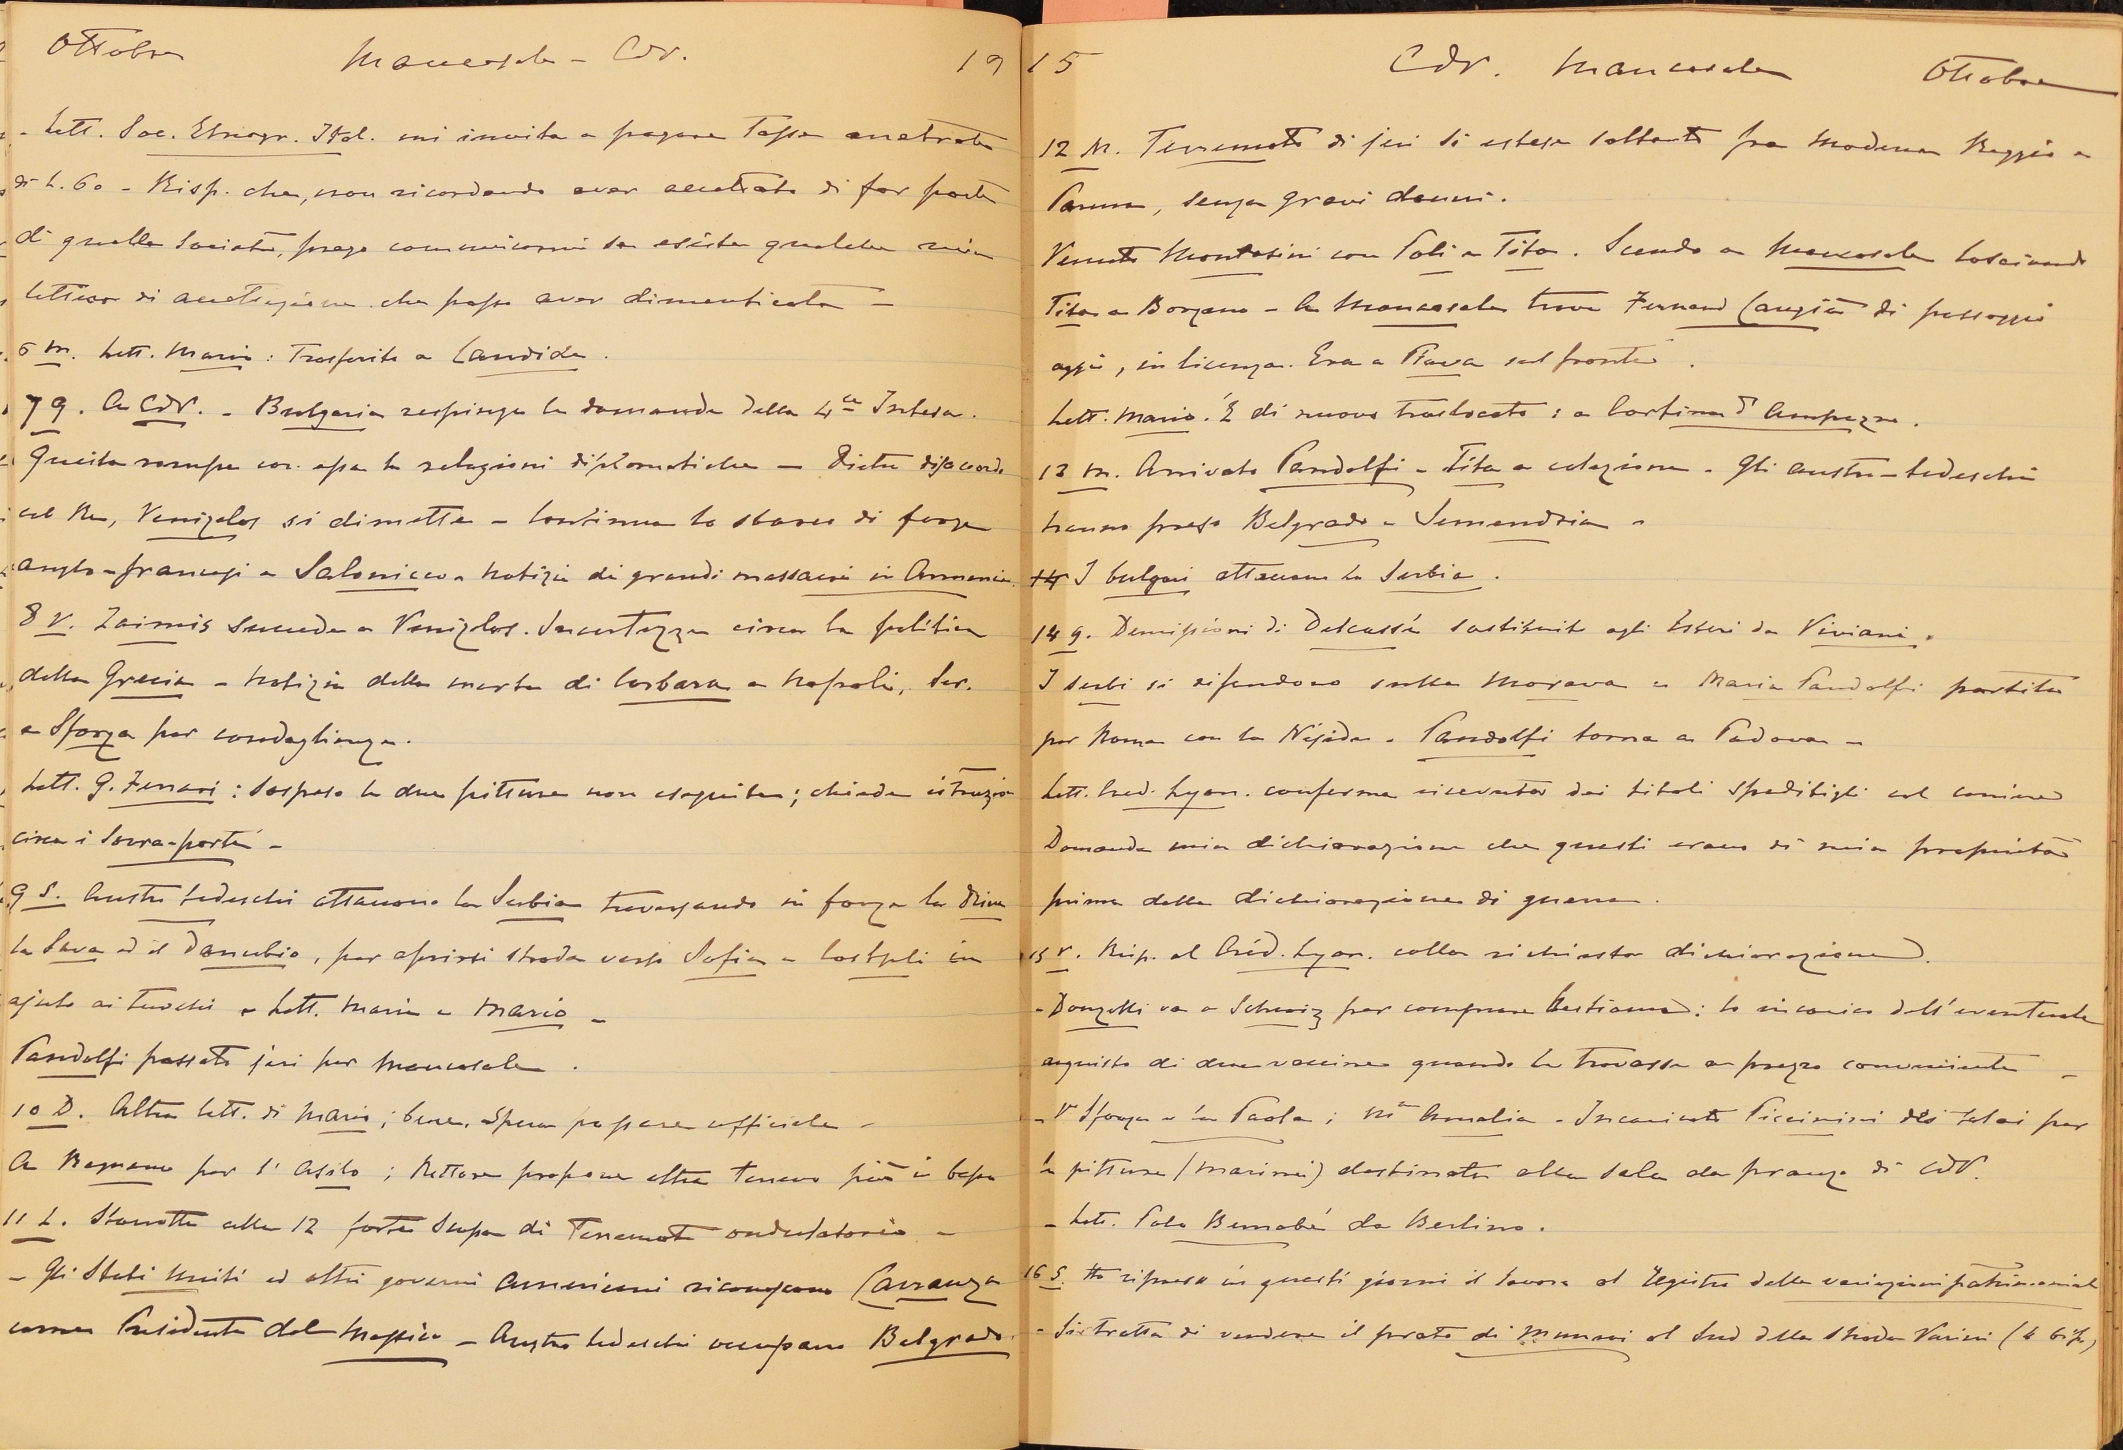 Ottobre Mancasale - CdV. 19
- Lett. Soc. Etnogr. Ital. mi invita a pagare tassa arretrata
di L. 60 - Risp. che, non ricordando aver accettato di far parte
di quella Società, prego comunicarmi se esiste qualche mia
lettera di accettazione che possa aver dimenticata -
6 m. Lett. Maria: Trasferito a Candide.
7 g. A CdV. - Bulgaria respinge la domanda della 4ce Intesa.
Questa rompe con essa le relazioni diplomatiche - Dietro disaccordo
col Re, Venizelos si dimette - Continua lo sbarco di forze
anglo-francesi a Salonicco - Notizie di grandi massacri in Armenia.
8 V. Zaimis succede a Venizelos. Incertezza circa la politica
della Grecia - Notizia della morte di Corbara a Napoli, Scr.
a Sforza per condoglianze.
Lett. G. Ferrari: Sospese le due pitture non eseguite; chiede istruzioni
circa i Sovra-porte -
9 S. Austro tedeschi attaccano la Serbia traversando in forze la Drina
la Sava ed il Danubio, per aprirsi strada verso Sofia e Costpli in
ajuto ai turchi - Lett. Maria e Mario -
Pandolfi passato jeri per Mancasale.
10 D. Altra lett. di Mario; bene, spera passare ufficiale -
A Bagnano per l'Asilo; Rettore propone altro terreno più in basso
11 L. Stanotte alle 12 forte scossa di Terremoto ondulatorio -
- Gli Stati Uniti ed altri governi Americani riconoscono Carranza
come Presidente del Messico - Austro tedeschi occupano Belgrado.
15 CdV. Mancasale Ottobre
12 M. Terremoto di jeri si estese soltanto fra Modena Reggio e
Parma, senza gravi danni.
Venuto Montasini con Poli e Tito. Scendo a Mancasale lasciando
Tito a Borzano - A Mancasale trovo Fernand Cangià di passaggio
oggi, in licenza. Era a Plava sul fronte.
Lett. Mario. È di nuovo traslocato: a Cortina d'Ampezzo.
13 m. Arrivato Pandolfi - Tito a colazione - Gli austro-tedeschi
hanno preso Belgrado e Semendria -
14 I bulgari attaccano la Serbia.
14 g. Demissioni di Delcassé sostituito agli Esteri da Viviani.
I serbi si difendono sulla Morava - Maria Pandolfi partita
per Roma con la Nejeda - Pandolfi torna a Padova -
Lett. Cred. Lyon. conferma ricevuta dei titoli speditigli col
Domanda mia dichiarazione che questi erano di mia proprietà
prima della dichiarazione di guerra.
15 V. Risp. al Créd. Lyon. colla richiesta dichiarazione.
- Donzelli va a Schwiz per comprare bestiame: lo incarico dell'eventuale
acquisto di due vaccine quando le trovasse a prezzo conveniente -
- V Sforza e la Paola; Mª Amalia - Incaricato Piccinini dei telai per
le pitture (marine) destinate alla sala da pranzo di CdV.
- Lett. Polo Bernabé da Berlino.
16 S. Ho ripreso in questi giorni il lavoro al Registro delle variazioni patrimoniali
- Si tratta di vendere il prato di Munari al Sud della strada Varini (4 bif.)